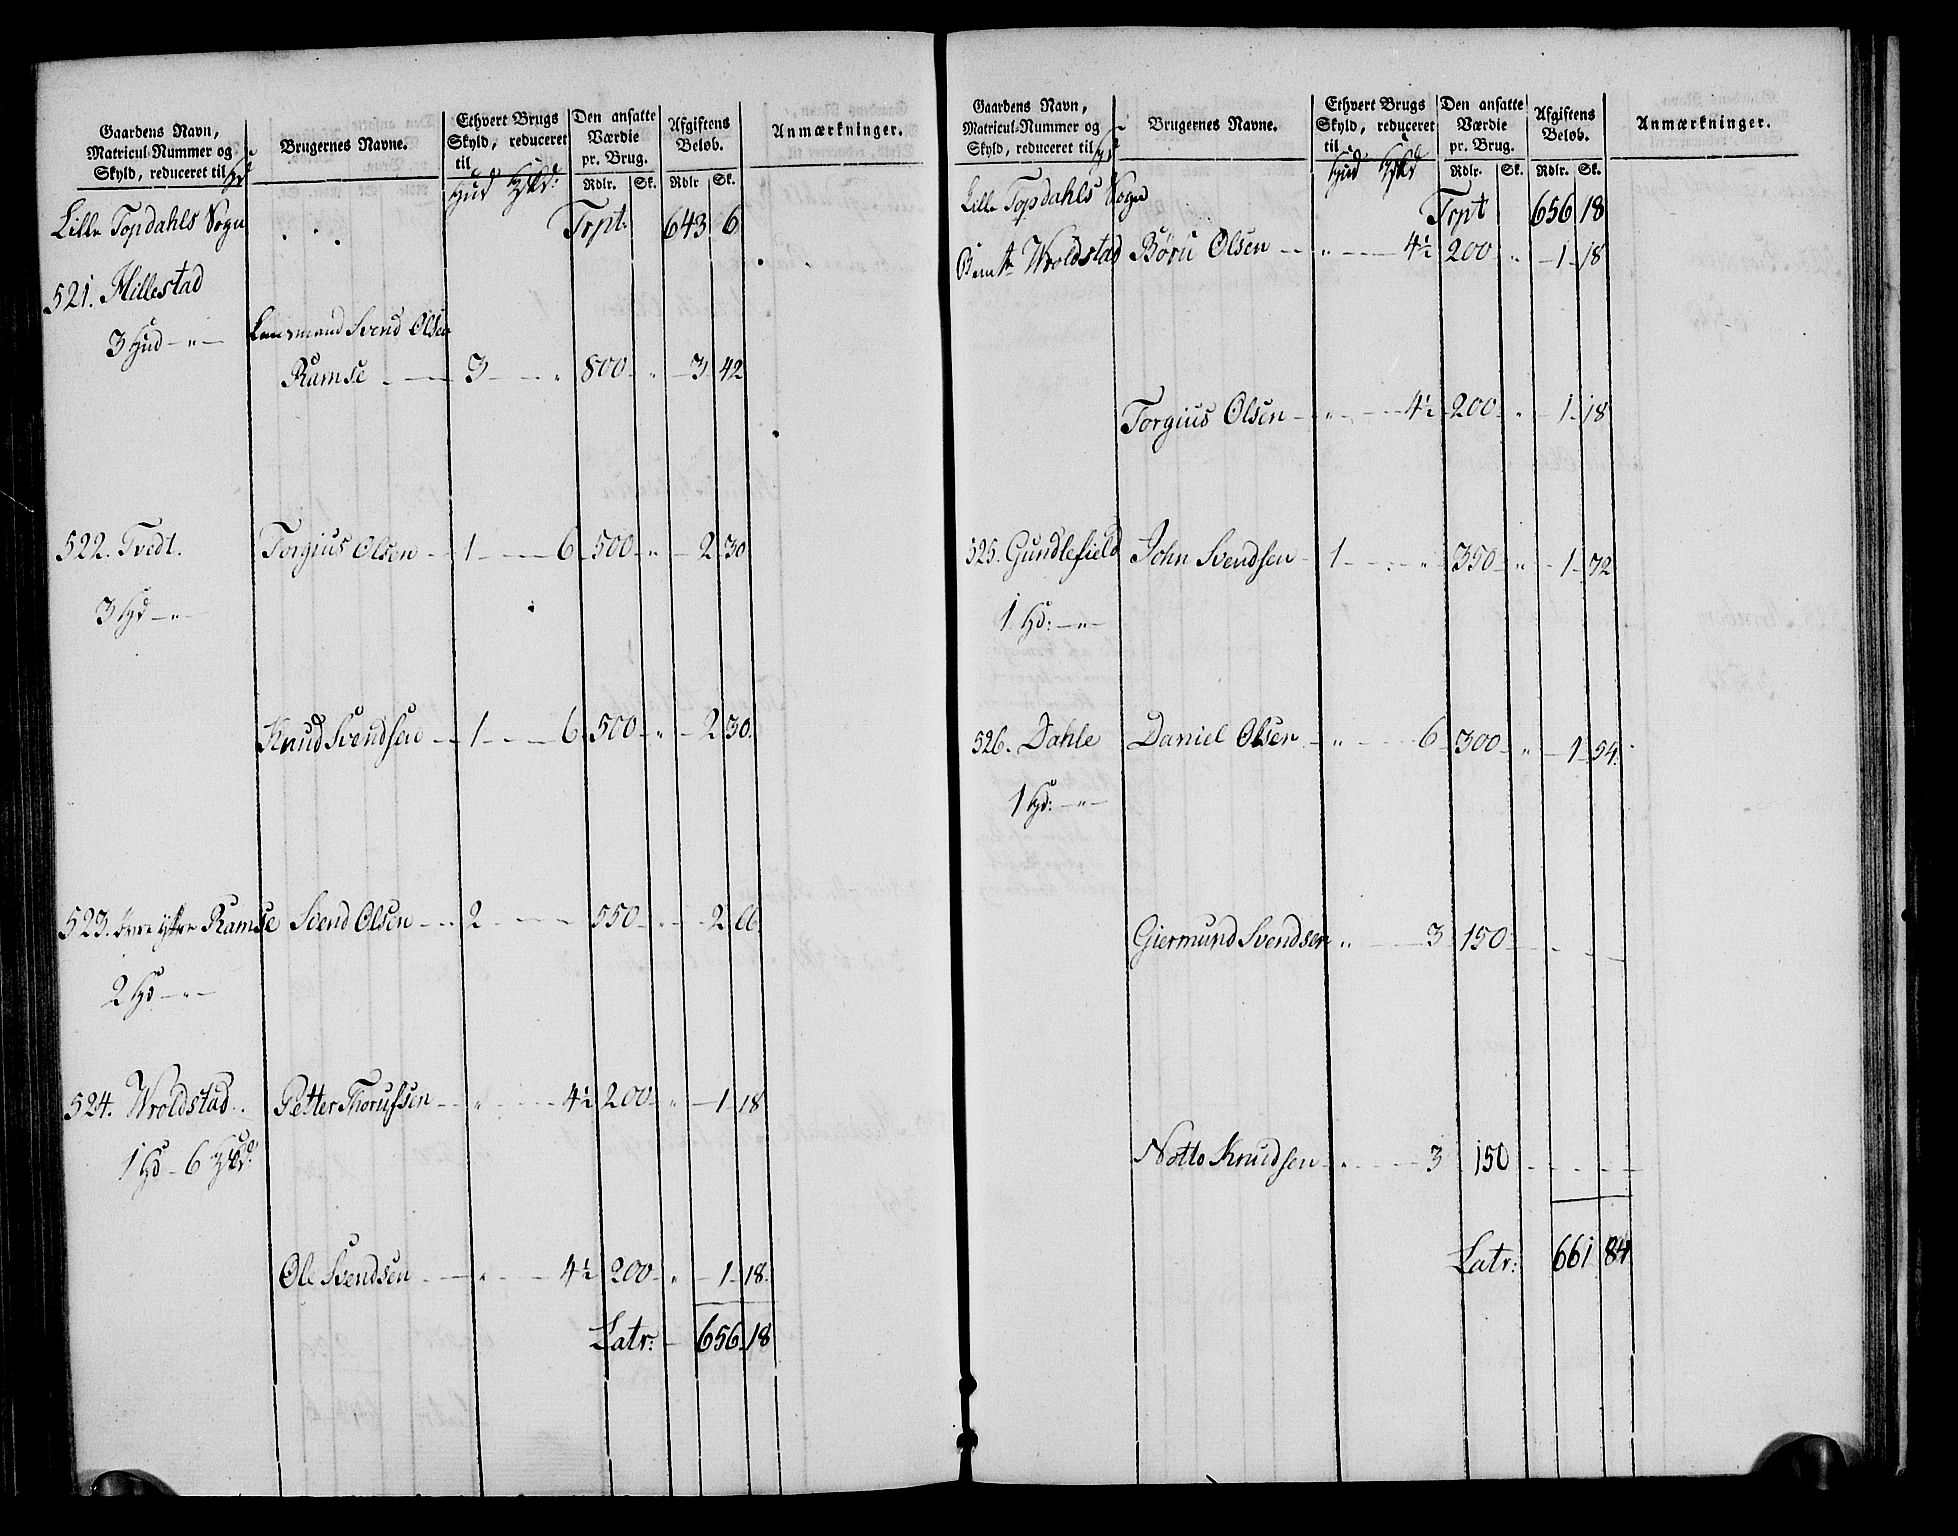 Gaardens Navn, Matricul-Nummer og Skyld, reduceret til Hd | Brugernes Navne. | Ethvert Brugs Skyld, reduceret til Hud | Den ansatte Værdie pr. Brug. Rdlr. Sk. | Afgiftens Beløb. Rdlr Sk. | Anmærkninger.
Lille Topdahls Sogn . . . Trpt: 643 6
521. Millestad
3 Hud - " - Lensmand Svend Olsen
Ramse - 3 - " 800 - " - 3 42
522. Tvedt. Torgius Olsen - 1 - 6 500 - " - 2 30
3 Hd - " -
Knud Svendsen - 1 - 6 500 - " - 2 30
523. Ramse Svend Olsen - 2 - 550 - " - 2 66
2 Hd - " -
524. Wroldstad. Petter Thorufsen - " - 4½ 200 - " - 1 18
1 Hd - 6
Ole Svendsen - " - 4½ 200 - " - 1 18
Latr: - 656 18
Gaardens Navn, Matricul-Nummer og Skyld, reduceret til Hd | Brugernes Navne. | Ethvert Brugs Skyld, reduceret til Hud | Den ansatte Værdie pr. Brug. Rdlr. Sk. | Afgiftens Beløb. Rdlr. Sk. | Anmærkninger.
Lille Topdahls Sogn Trpt 656 18
Wroldstad Børu Olsen - " - 4½ 200 " - 1 - 18
Torgius Olsen - " - 4½ 200 - " - 1 - 18
525. Gundlefield John Svendsen - 1 - " 350 - " - 1 - 72
1 Hd: - " -
526. Dahle Daniel Olsen - " - 6 300 - " - 1 - 54.
1 Hd: - " -
Giermund Svendsen " - 3 150 -
Notto Knudsen - " - 3 150 -
Latr: 661 84